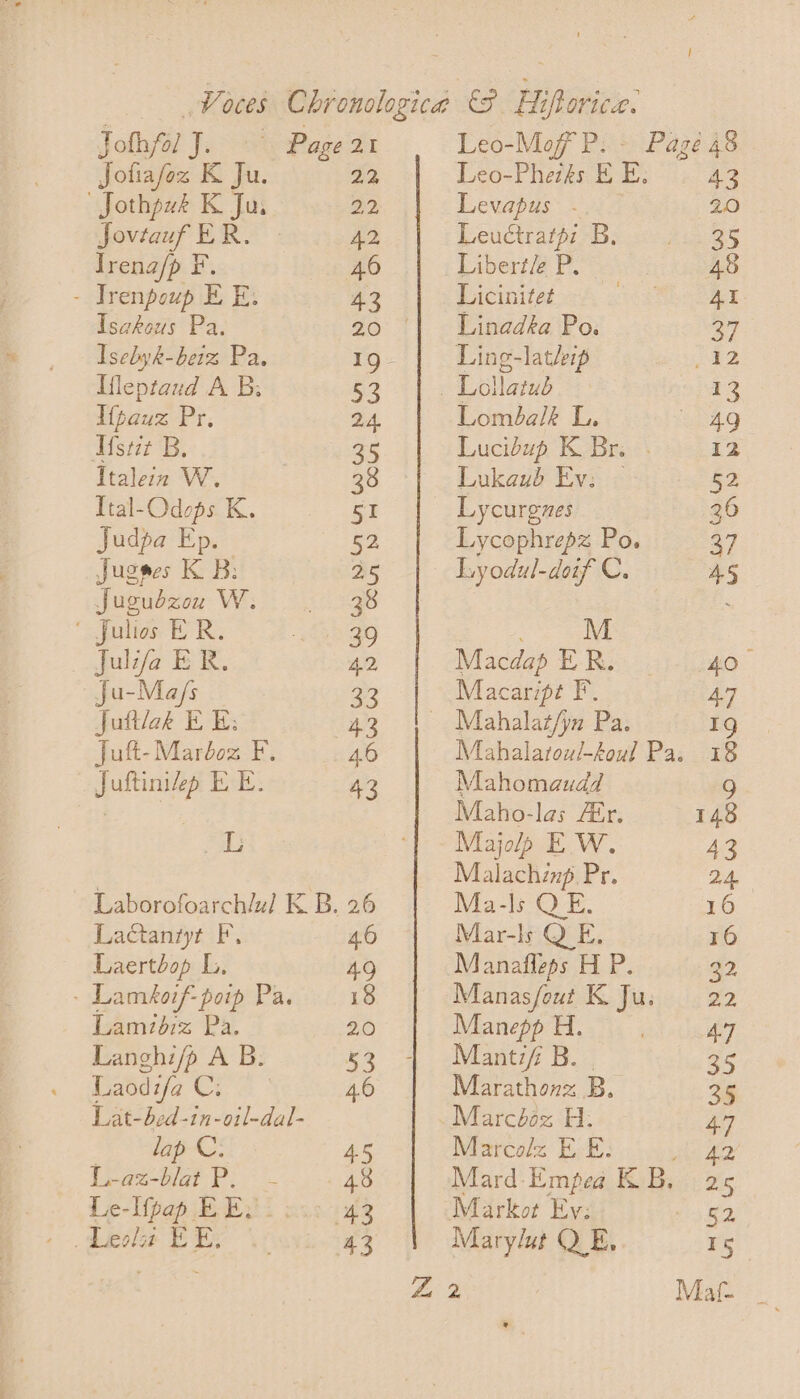 Voces Chronologicæ & Hiſtoricæ.
Joſhſol J. Page 21
Joſiafoz K Ju. 22
Jothpuk K Ju. 22
Jovtauf E R. 42
Irenaſp F. 46
Irenpoup E E. 43
Isakous Pa. 20
Isebyk-beiz Pa. 19
Iſleptaud A B. 53
Iſpauz Pr. 24
Iſstit B. 35
Italein W. 38
Ital-Odops K. 51
Judpa Ep. 52
Jugnes K B. 25
Jugubzou W. 38
Julios E R. 39
Juliſa E R. 42
Ju-Maſs 33
Juſtlak E E. 43
Juſt-Marboz F. 46
Juſtinilep E E. 43
L
Laborofoarchlul K B. 26
Lactantyt F. 46
Laertbop L. 49
Lamkoif-poip Pa. 18
Lamibiz Pa. 20
Langhiſp A B. 53
Laodiſa C. 46
Lat-bed-in-oil-dal-
lap C. 45
L-az-blat P. 48
Le-Iſpap E E. 43
Leolsi E E. 43
Leo-Moff P. Page 48
Leo-Pheiks E E. 43
Levapus 20
Leuctratpi B. 35
Libertle P. 48
Licinitet 41
Linadka Po. 37
Ling-latleip 12
Lollatub 13
Lombalk L. 49
Lucibup K Br. 12
Lukaub Ev. 52
Lycurgnes 36
Lycophrepz Po. 37
Lyodul-doif C. 45
M
Macdap E R. 40
Macaript F. 47
Mahalatſyn Pa. 19
Mahalatoul-koul Pa. 18
Mahomaudd 9
Maho-las Ær. 148
Majolp E W. 43
Malachinp Pr. 24
Ma-ls Q E. 16
Mar-ls Q E. 16
Manaſleps H P. 32
Manasſout K Ju. 22
Manepp H. 47
Mantiſi B. 35
Marathonz B. 35
Marcboz H. 47
Marcolz E E. 42
Mard-Empea K B. 25
Markot Ev. 52
Marylut Q E. 15
Z 2 Maſ-